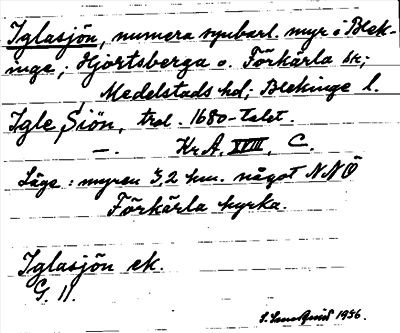 Iglasjön, numera synbarl. myr i Blek-
inge; Hjortsberga o. Förkärla sk;
Medelstads hd; Blekinge l.
Igle Siön, trol. 1680-talet.
—. Kr A, XVIII, C.
Läge: myren 3,2 km. något NNÖ
Förkärla kyrka.
Iglasjön ek.
G. 11.
1936.